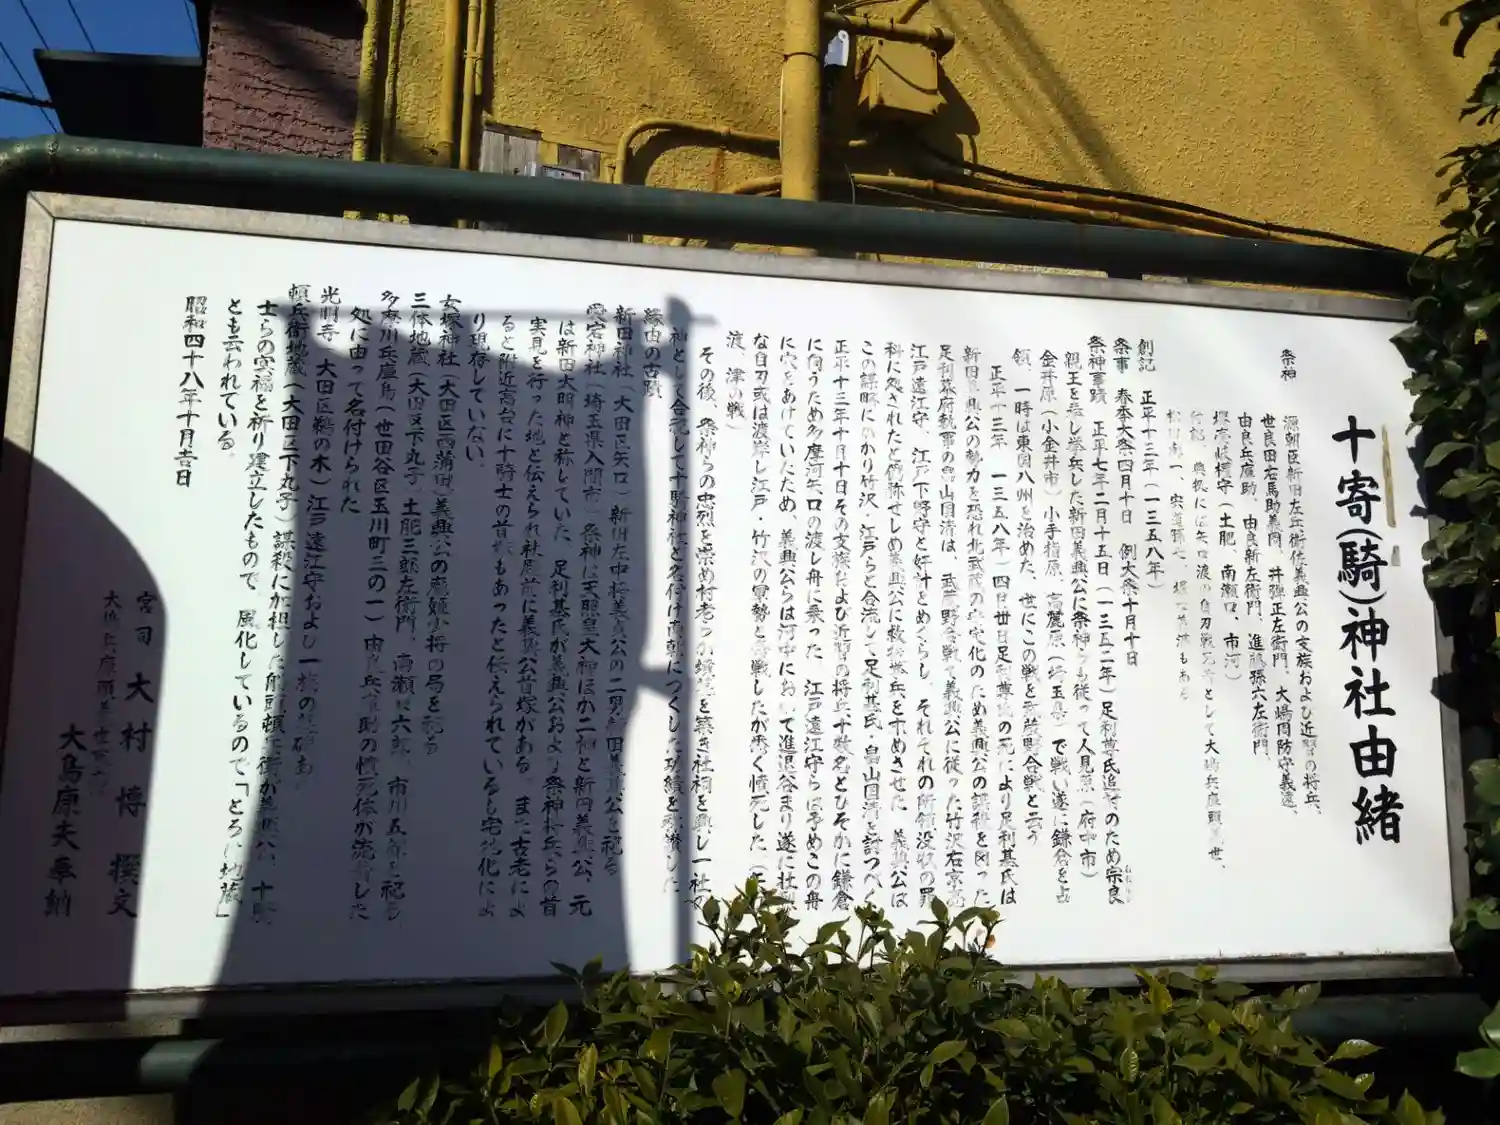 十寄(騎)神社由緒
祭神
源朝臣新田左兵衛佐義興公の支族および近習の将兵、
世良田右馬助義周、井弾正左衛門、大嶋周防守義遠、
由良兵庫助、由良新左衛門、進藤孫六左衛門、
堺壱岐権守(土肥、南瀬口、市河)
矢口渡の自刃戦死者として大嶋兵庫頭義世、
創記 正平十三年(一三五八年)
祭事 春季大祭四月十日 例大祭十月十日
祭神事蹟 正平七年二月十五日(一三五二年)足利尊氏追討のため宗良
親王を奉じ挙兵した新田義興公に祭神らも従って人見原(府中市)
金井原(小金井市)小手指原、高麗原(埼玉県)で戦い遂に鎌倉を占
領、一時は東国八州を治めた、世にこの戦を武蔵野合戦と云う
正平十三年 一三五八年)四月廿日足利尊氏の死により足利基氏は
新田義興公の勢力を恐れ北武蔵の安定化のため義興公の謀殺を図った
足利幕府執事の畠山国清は、武蔵野合戦で義興公に従った竹沢右京亮
江戸遠江守、江戸下野守と奸計をめぐらし、それぞれの所領没収の罪
科に処されたと偽称せしめ義興公に救援将兵を求めさせた 義興公は
この謀略にかかり竹沢、江戸らと合流して足利基氏・畠山国清を討つべく
正平十三年十月十日その支族および近習の将兵十数名とひそかに鎌倉
に向うため多摩河矢口の渡し舟に乗った、江戸遠江守らは予めこの舟
に穴をあけていたため、義興公らは河中において進退谷まり遂に壮烈
な自刃或は渡岸し江戸・竹沢の軍勢と奮戦したが悉く憤死した(矢口の
渡、津の戦)
その後、祭神らの忠烈を崇め村老らが墳墓を築き社祠を興し一社の
神として合祀して十騎神社と名付け南朝につくした功績を称讃した
縁由の古蹟
新田神社 大田区矢口)新田左中将義貞公の二男新田義興公を祀る
愛宕神社(埼玉県入間市)祭神は天照皇大神ほか二神と新田義興公、元
は新田大明神と称していた、足利基氏が義興公および祭神将兵らの首
実見を行った地と伝えられ社殿前に義興公首塚がある。また古老によ
ると附近高台に十騎士の首塚もあったと伝えられているし宅地化によ
り現存していない、
女塚神社(大田区西蒲田)義興公の寵姫少将の局を祀る
三体地蔵(大田区下丸子)土肥三郎左衛門、南瀬口六郎、市川五郎を祀る
多摩川兵庫島(世田谷区玉川町三の一)由良兵庫助の憤死体が流着した
処に由って名付けられた
光明寺 大田区鵜の木)江戸遠江守および一族の墓碑あり
頓兵衛地蔵(大田区下丸子)謀殺に加担した船頭頓兵衛が義興公、十騎
士らの冥福を祈り建立したもので、風化しているので「とろけ地蔵」
とも云われている。
昭和四十八年十月吉日
宮司 大村博 撰文
大嶋原夫奉納